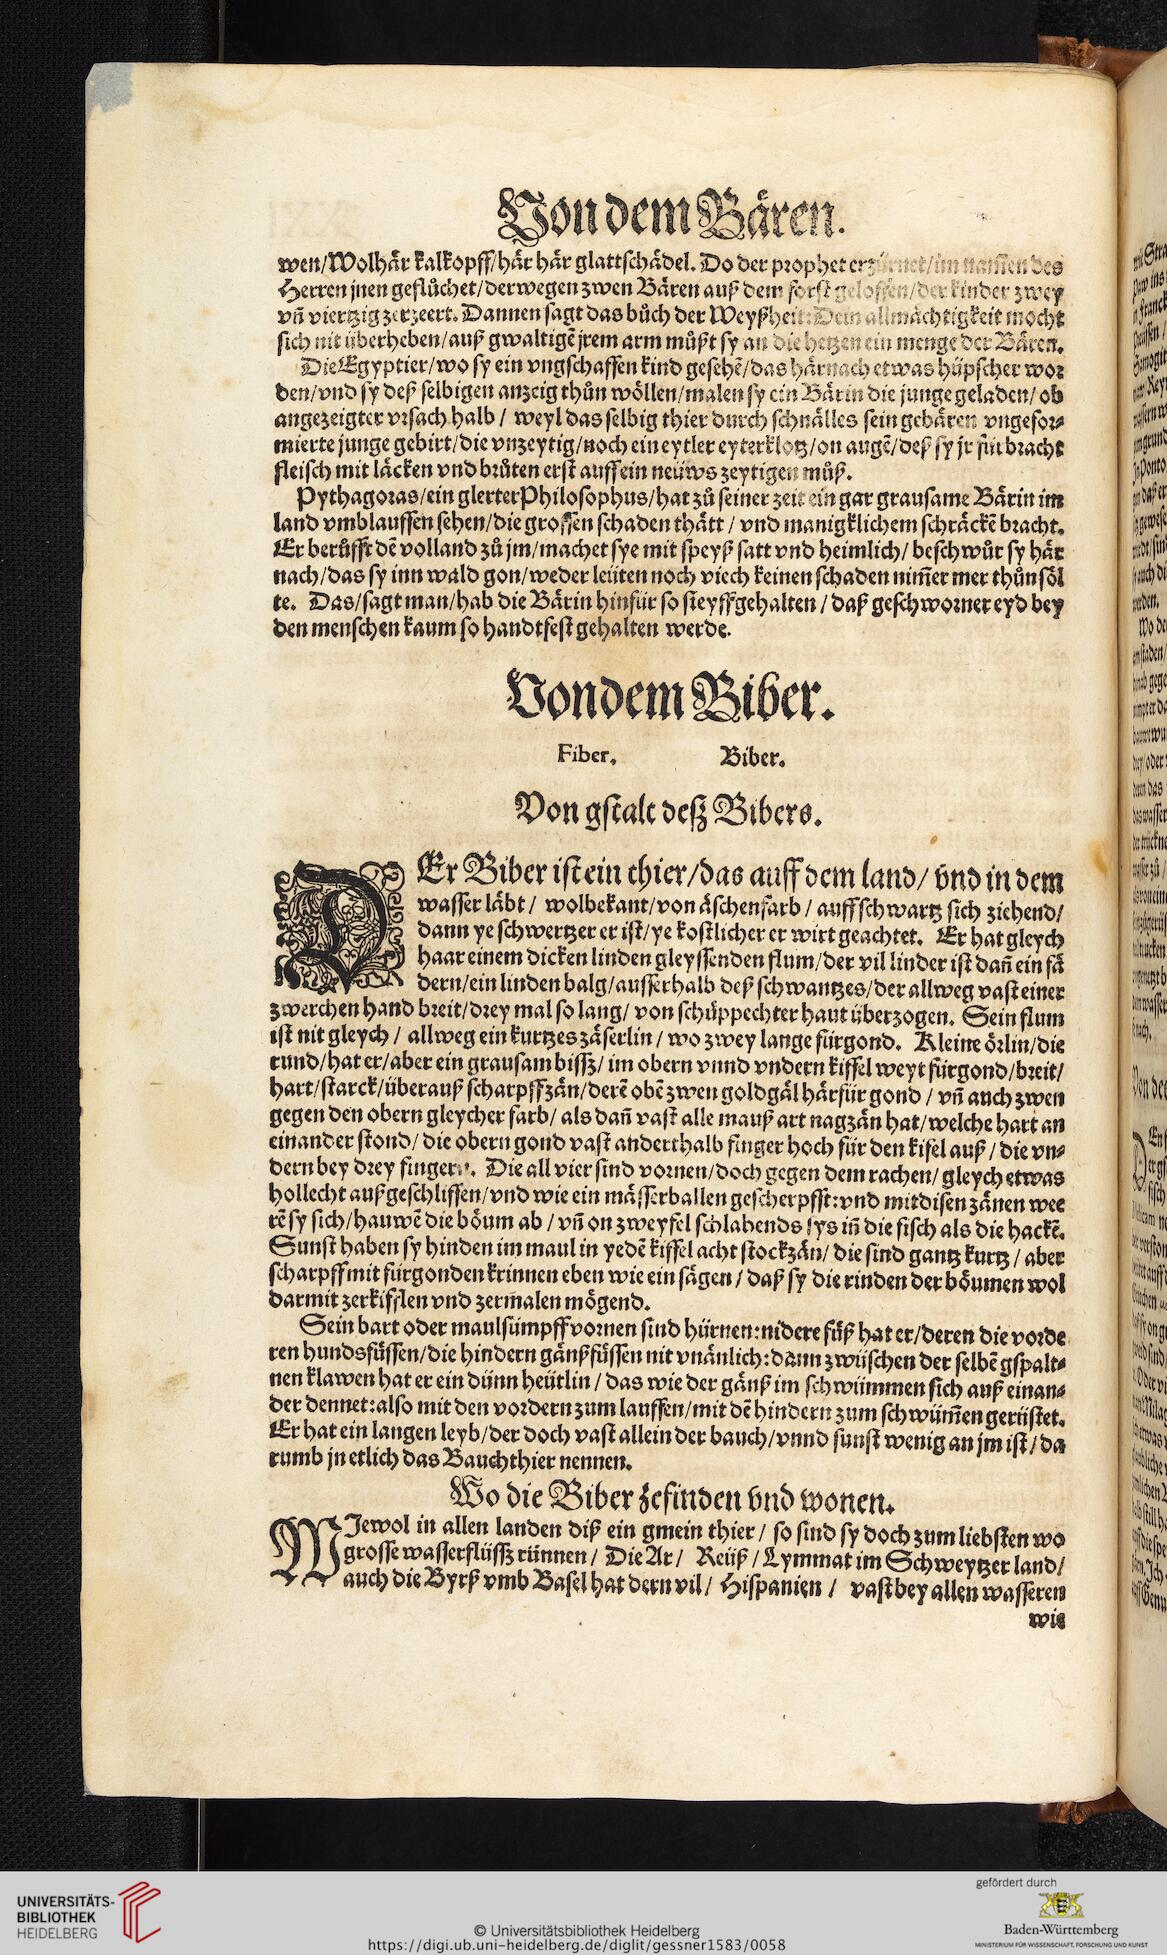 Von dem Bären.
wen/Wolhär kalkopff/här här glattschädel. Do der prophet erzürnet/im nammen des
Herren jnen geflůchet/derwegen zwen Bären auß dem forst geloffen/der kinder zwey
vñ viertzig zerzeert. Dannen sagt das bůch der Weyßheit: Dein allmächtigkeit mocht
sich nit überheben/auß gwaltigẽ jrem arm můßt sy an die hetzen ein menge der Bären.
Die Egyptier/wo sy ein vngschaffen kind gesehẽ/das härnach etwas hüpscher wor
den/vnd sy deß selbigen anzeig thůn wöllen/malen sy ein Bärin die junge geladen/ ob
angezeigter vrsach halb / weyl das selbig thier durch schnälles sein gebären vngefor⸗
mierte junge gebirt/die vnzeytig/noch ein eytler eyterklotz/on augẽ/deß sy jr für bracht
fleisch mit läcken vnd brůten erst auff ein neüws zeytigen můß.
Pythagoras/ein glerter Philosophus/hat zů seiner zeit ein gar grausame Bärin im
land vmblauffen sehen/die grossen schaden thätt / vnd manigklichem schräckẽ bracht.
Er berůfft dẽ volland zů jm/machet sye mit speyß satt vnd heimlich/ beschwůr sy här
nach/das sy inn wald gon/weder leüten noch viech keinen schaden nim̃er mer thůn söl
te. Das/sagt man/hab die Bärin hinfür so steyff gehalten / daß geschworner eyd bey
den menschen kaum so handtfest gehalten werde.
Von dem Biber.
Fiber. Biber.
Von gstalt deß Bibers.
DEr Biber ist ein thier/das auff dem land/ vnd in dem
wasser läbt / wolbekant/von äschenfarb / auff schwartz sich ziehend/
dann ye schwertzer er ist/ye kostlicher er wirt geachtet. Er hat gleych
haar einem dicken linden gleyssenden flum/der vil linder ist dañ ein fä
dern/ein linden balg/ausserhalb deß schwantzes/der allweg vast einer
zwerchen hand breit/drey mal so lang/ von schüppechter haut überzogen. Sein flum
ist nit gleych / allweg ein kurtzes zäserlin / wo zwey lange fürgond. Kleine örlin/die
rund/hat er/aber ein grausam bissz/ im obern vnnd vndern kiffel weyt fürgond/breit/
hart/starck/überauß scharpff zän/derẽ obẽ zwen goldgäl härfür gond / vñ auch zwen
gegen den obern gleycher farb/ als dañ vast alle mauß art nagzän hat/welche hart an
einander stond/ die obern gond vast anderthalb finger hoch für den kifel auß / die vn⸗
dern bey drey fingern. Die all vier sind vornen/doch gegen dem rachen/ gleych etwas
hollecht außgeschliffen/vnd wie ein mässerballen gescherpfft: vnd mit disen zänen wee
rẽ sy sich/hauwẽ die böum ab / vñ on zweyfel schlahends sys iñ die fisch als die hackẽ.
Sunst haben sy hinden im maul in yedẽ kiffel acht stockzän/ die sind gantz kurtz / aber
scharpff mit fürgonden krinnen eben wie ein sägen / daß sy die rinden der böumen wol
darmit zerkifflen vnd zermalen mögend.
Sein bart oder maulsümpff vornen sind hürnen: nidere füß hat er/deren die vorde
ren hundsfüssen/die hindern gänßfüssen nit vnänlich: dann zwüschen der selbẽ gspalt⸗
nen klawen hat er ein dünn heütlin / das wie der gänß im schwümmen sich auß einan⸗
der dennet: also mit den vordern zum lauffen/mit dẽ hindern zum schwüm̃en gerüstet.
Er hat ein langen leyb/der doch vast allein der bauch/vnnd sunst wenig an jm ist / da
rumb jn etlich das Bauchthier nennen.
Wo die Biber zefinden vnd wonen.
WJewol in allen landen diß ein gmein thier / so sind sy doch zum liebsten wo
grosse wasserflüssz rünnen / Die Ar / Reüß / Lymmat im Schweytzer land/
auch die Byrß vmb Basel hat dern vil / Hispanien / vast bey allen wasseren
wie
UNIVERSITÄTS-
BIBLIOTHEK
HEIDELBERG
© Universitätsbibliothek Heidelberg
https://digi.ub.uni-heidelberg.de/diglit/gessner1583/0058
gefördert durch
Baden-Württemberg
MINISTERIUM FÜR WISSENSCHAFT, FORSCHUNG UND KUNST